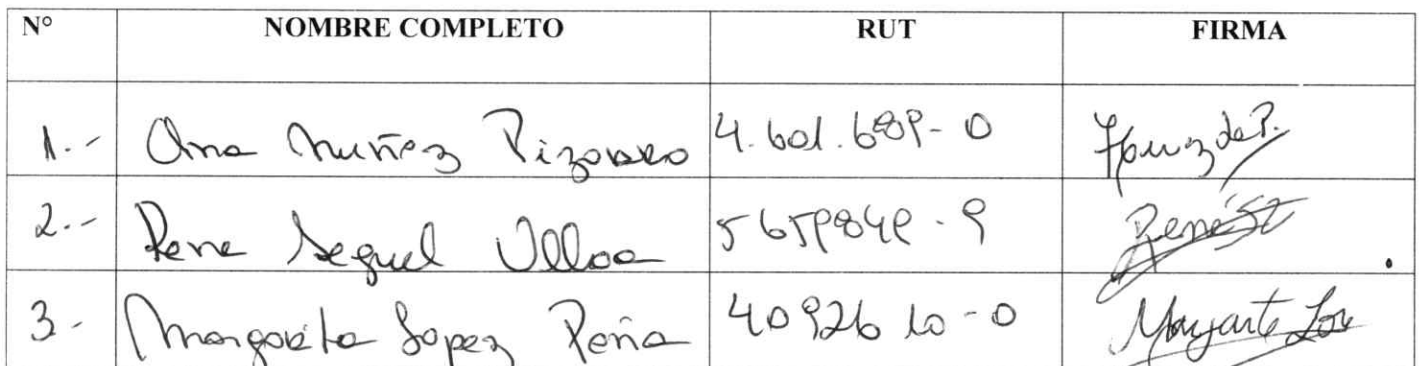 N° NOMBRE COMPLETO RUT FIRMA
1.- Ana Nuñez Pizarro 4.601.689-0
2.- Rene Seguel Ulloa 5659849-9 René S
3- Margarita Lopez Peña 4092610-0 Margarita Lop